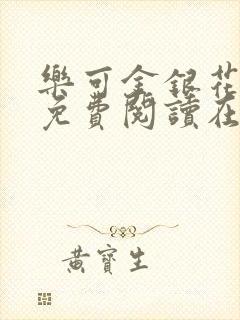 樂可金銀花
免費閱讀在
黃寶生